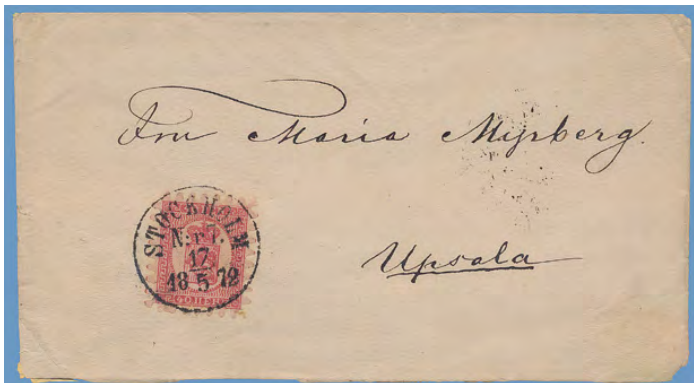 Fru Maria Myrberg.
Upsala
STOCKHOLM
N:r 1.
17
18 5 72
40 ПЕН